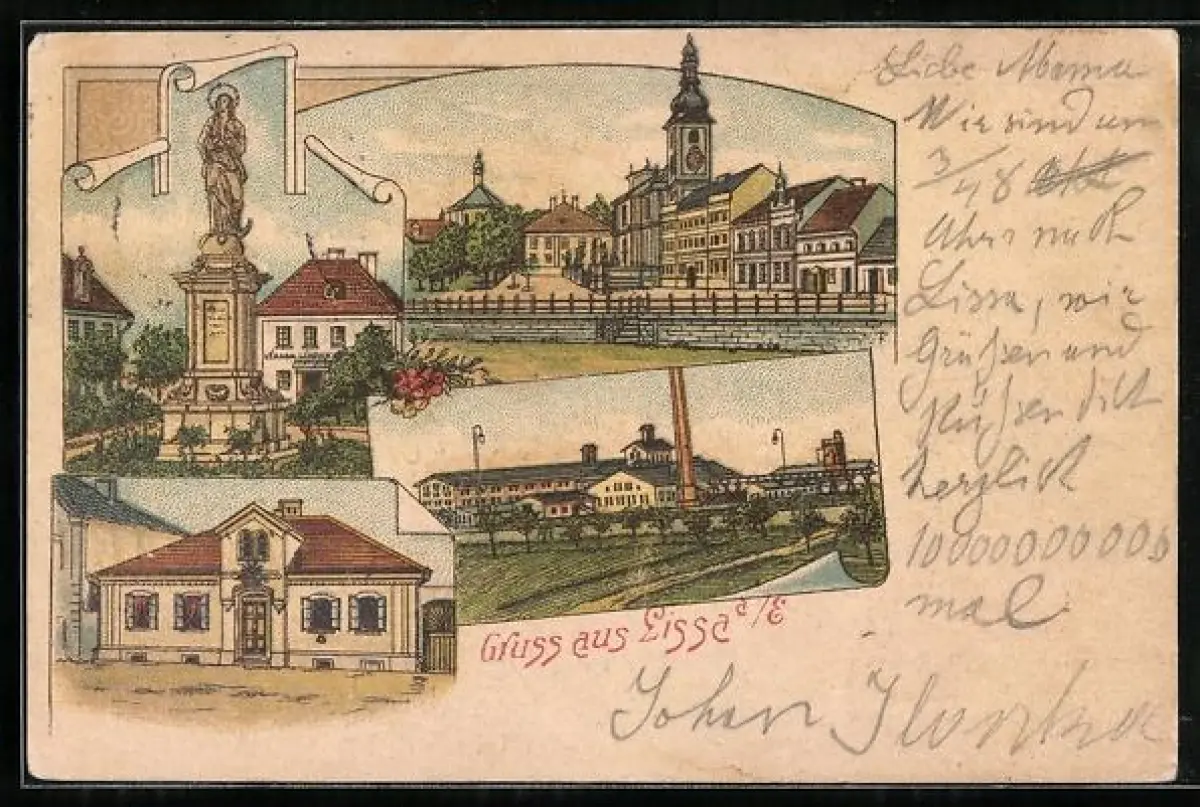 Liebe Mama
Wir sind um
3/48
Uhr nach
Lissa, wir
Grüßen und
Küßen dich
herzlich
10000000000
mal
Gruss aus Lissa a/E
Johan